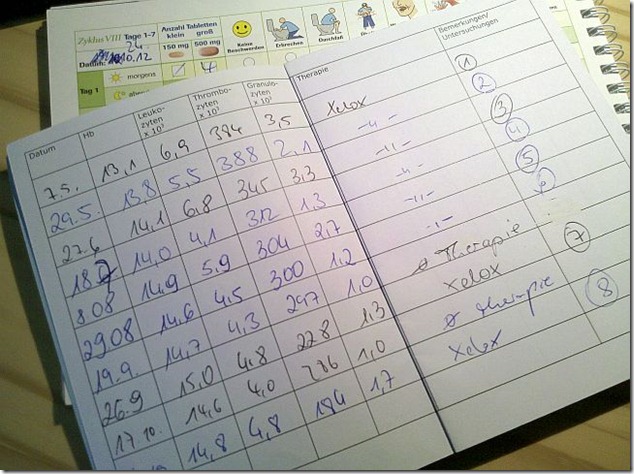 Zyklus VIII Tage 1-7
Anzahl Tabletten
klein groß
150 mg 500 mg
Keine Beschwerden
Erbrechen
Durchfall
Datum: 24.10.12
Tag 1 morgens 4
Datum Hb Leuko-zyten x 10³ Thrombo-zyten x 10³ Granulo-zyten x 10³ Therapie Bemerkungen/Untersuchungen
7.5. 13,1 6,9 384 3,5 Xelox 1
29.5. 13,8 5,5 388 2,1 -"- 2
27.6 14,1 6,8 345 3,3 -"- 3
18.7 14,0 4,1 312 1,3 -"- 4
8 08 14,9 5,9 304 2,7 -"- 5
29 08 14,6 4,5 300 1,2 -"- 6
19.9. 14,7 4,3 297 1,0 ø Therapie
26.9 15,0 4,8 228 1,3 Xelox 7
17 10. 14,6 4,0 1,0 ø therapie
14,8 4,8 184 1,7 Xelox 8